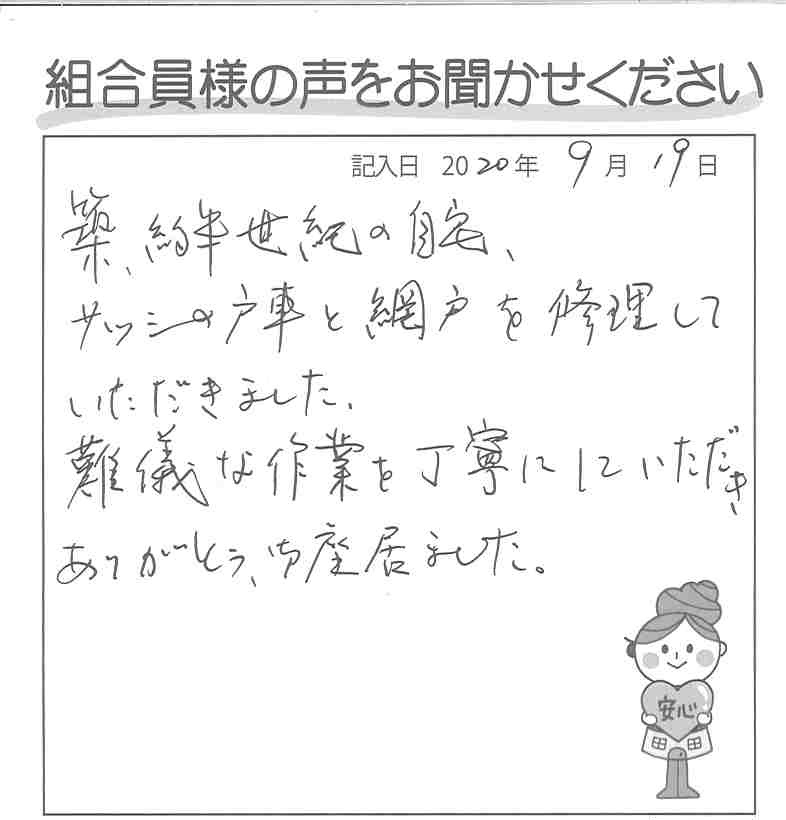 組合員様の声をお聞かせください
記入日 2020年 9月 19日
築、約半世紀の自宅、
サッシの戸車と網戸を修理して
いただきました、
難儀な作業を丁寧にしていただき
ありがとう、御座居ました。
安心